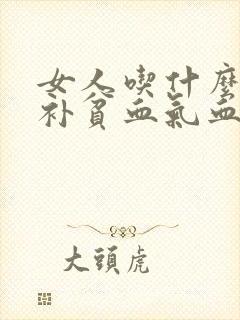 女人喫什麼
補貧血氣血
大頭虎